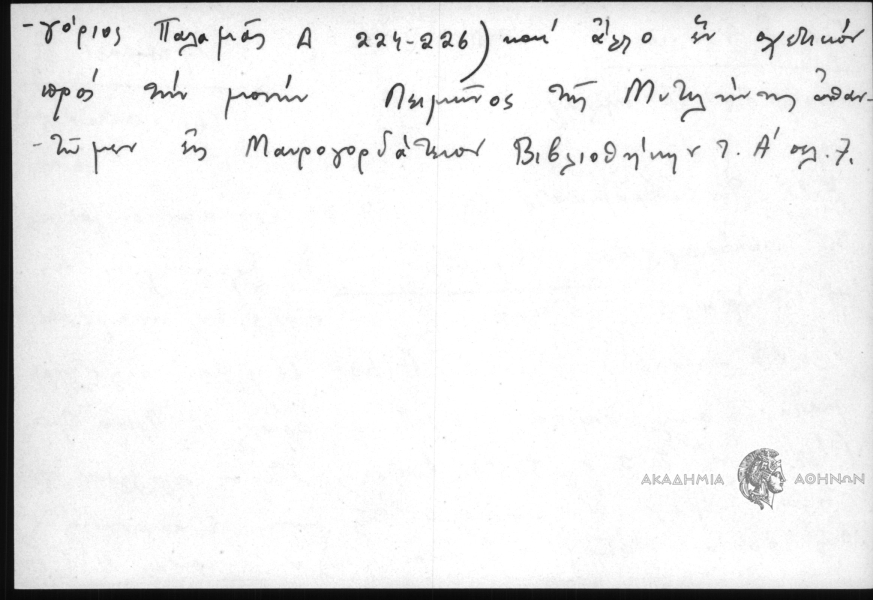 -γόριος Παλαμᾶς Α 224-226) καὶ ἄλλο ἓν σχετικὸν
πρὸς τὴν μονὴν Λειμῶνος τῆς Μυτιλήνης ἀπαν-
-τῶμεν εἰς Μαυρογορδάτειον Βιβλιοθήκην τ. Α' σελ. 7.
ΑΚΑΔΗΜΙΑ ΑΘΗΝΩΝ